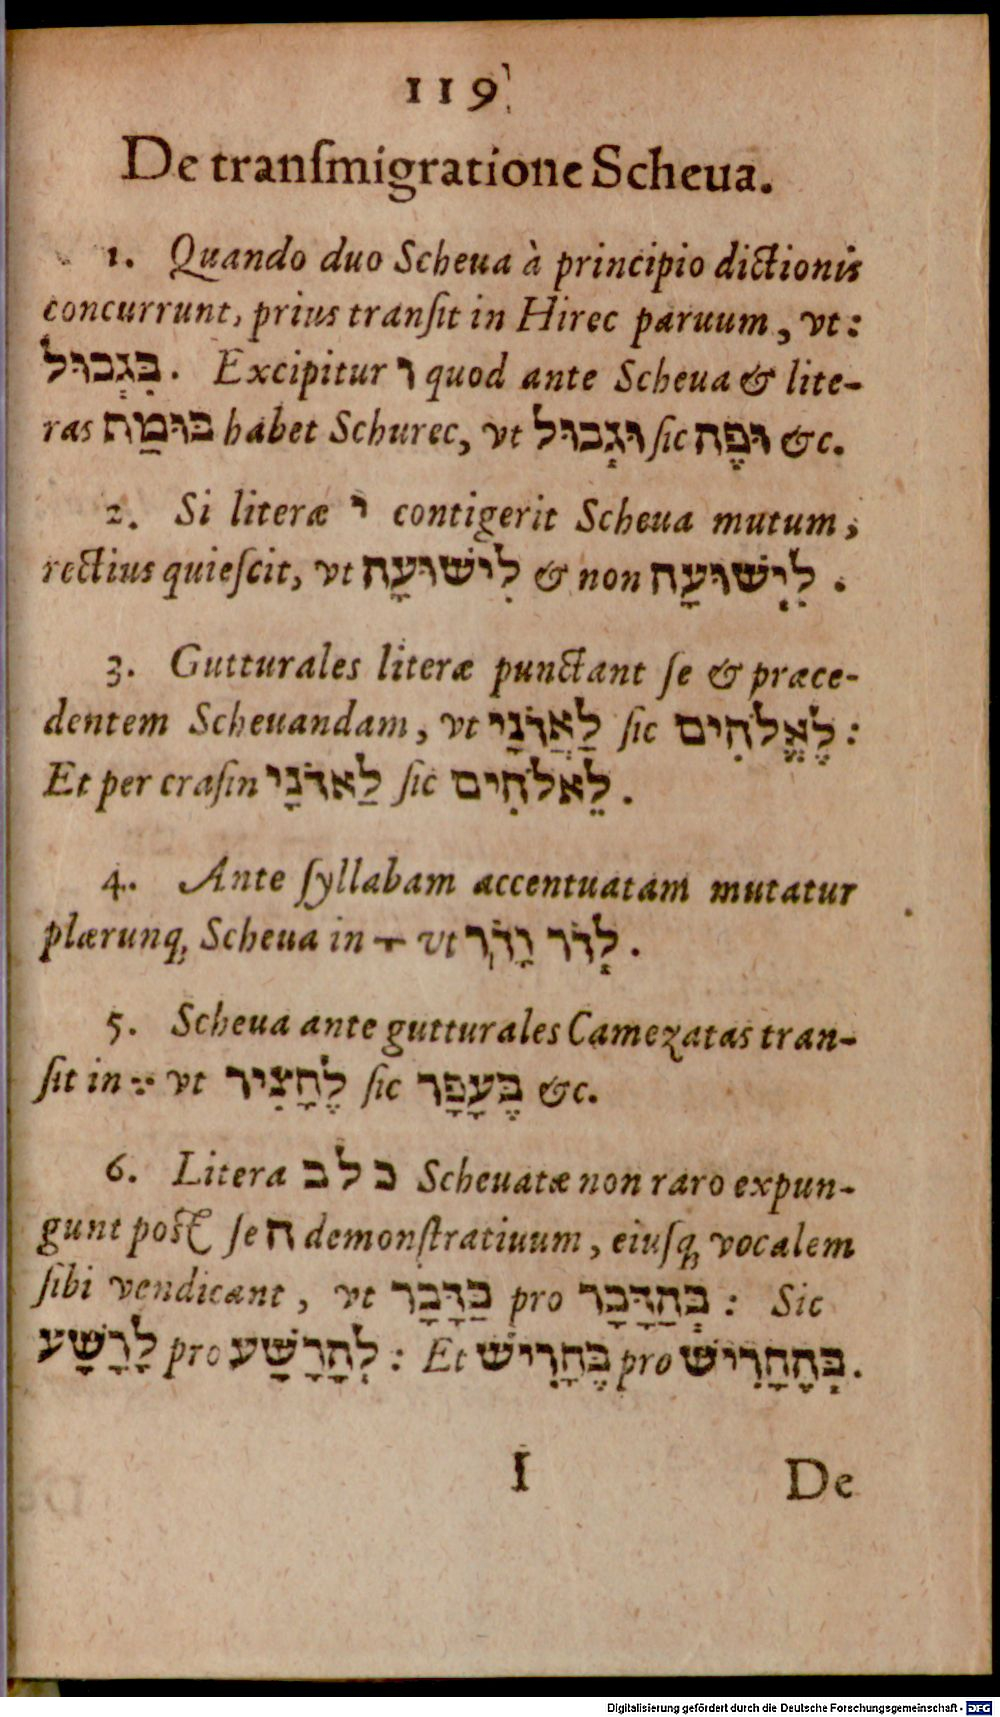 119
De tranſmigratione Scheua.
1. Quando duo Scheua à principio dictionis
concurrunt, prius tranſit in Hirec paruum, vt:
בִּגְבוּל. Excipitur ו quod ante Scheua & lite-
ras בּוּמַח habet Schurec, vt וּגְבוּל ſic וּפֶה &c.
2. Si literæ י contigerit Scheua mutum,
rectius quieſcit, vt לִישׁוּעָה & non לִיְשׁוּעָה.
3. Gutturales literæ punctant ſe & præce-
dentem Scheuandam, vt לַאֲדֹנָי ſic לֶאֱלֹהִים:
Et per craſin לַאדֹנָי ſic לֵאלֹהִים.
4. Ante ſyllabam accentuatam mutatur
plærunq; Scheua in ָ vt לְדֹר וָדֹר.
5. Scheua ante gutturales Camezatas tran-
ſit in ֶ vt לֶחָצִיר ſic בֶּעָפָר &c.
6. Litera כ ל ב Scheuatæ non raro expun-
gunt poſt ſe ה demonſtratiuum, eiuſq; vocalem
ſibi vendicant, vt בַּדָּבָר pro בְּהַדָּבָר: Sic
לָרָשָׁע pro לְהָרָשָׁע: Et בֶּחָרִישׁ pro בְּהֶחָרִישׁ.
I De
Digitalisierung gefördert durch die Deutsche Forschungsgemeinschaft - DFG